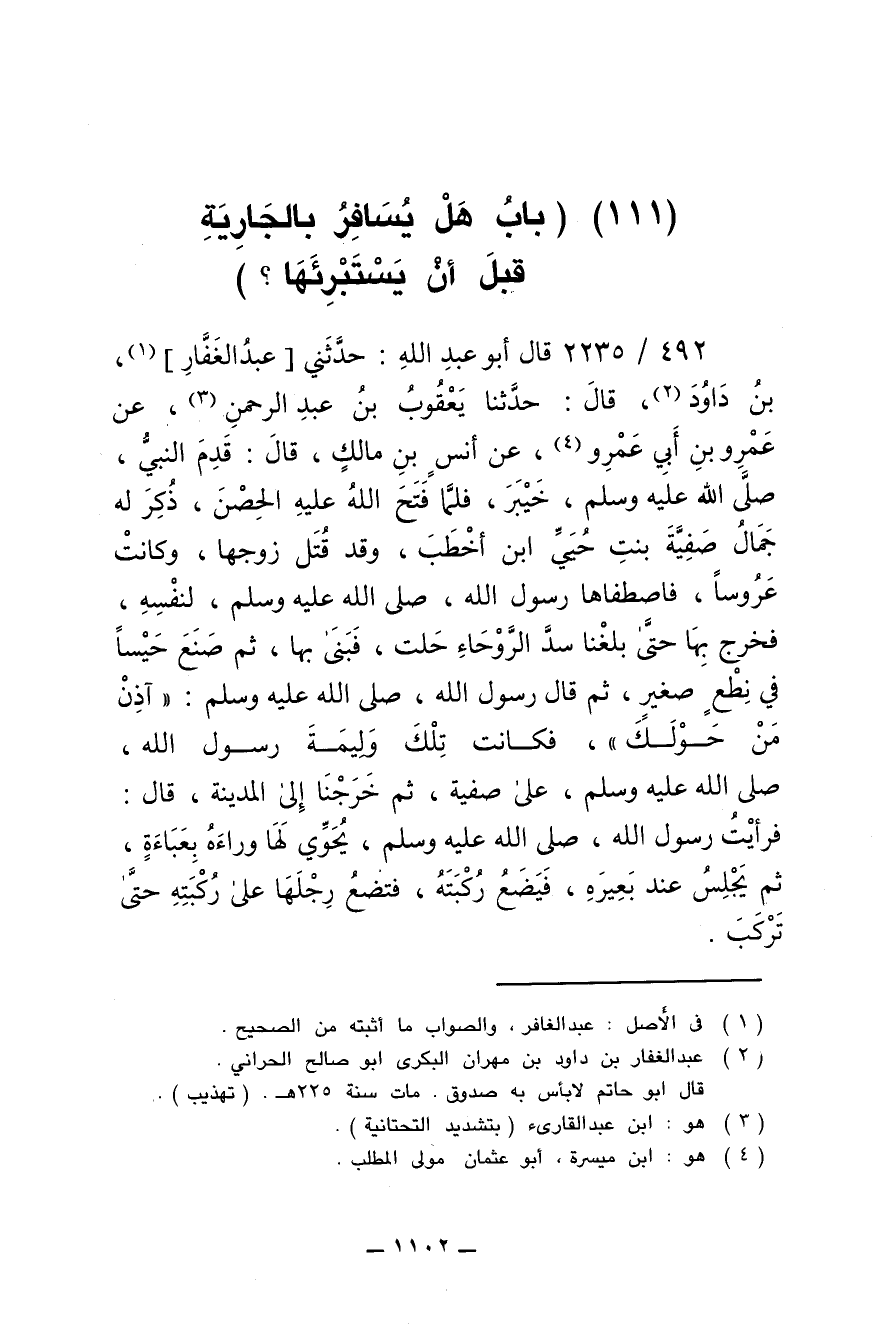 (١١١) ( بابُ هَلْ يُسَافِرُ بالجَارِيَةِ
قبلَ أنْ يَسْتَبْرِئَهَا ؟ )
٤٩٢ / ٢٢٣٥ قال أبو عبدِ اللهِ : حدَّثَني [ عبدُالغَفَّارِ ] (١)،
بنُ دَاوُدَ (٢)، قالَ : حدَّثنا يَعْقُوبُ بنُ عبدِ الرحمنِ (٣) ، عن
عَمْرِو بنِ أَبي عَمْرٍو (٤) ، عن أنسِ بنِ مالكٍ ، قالَ : قَدِمَ النبيُّ ،
صلَّى الله عليه وسلم ، خَيْبَرَ ، فلمَّا فَتَحَ اللهُ عليهِ الحِصْنَ ، ذُكِرَ له
جَمَالُ صَفِيَّةَ بنتِ حُيَيٍّ ابن أخْطَبَ ، وقد قُتَل زوجها ، وكانتْ
عَرُوساً ، فاصطفاها رسول الله ، صلى الله عليه وسلم ، لنفْسِهِ ،
فخرج بِهَا حتَّى بلغْنا سدَّ الرَّوْحَاءِ حَلت ، فَبَنَى بها ، ثم صَنَعَ حَيْساً
في نِطْعٍ صغيرٍ ، ثم قال رسول الله ، صلى الله عليه وسلم : « آذِنْ
مَنْ حَـوْلَـكَ » ، فكـانت تِلْكَ وَلِيمَـةَ رسـول الله ،
صلى الله عليه وسلم ، على صفية ، ثم خَرَجْنَا إلى المدينة ، قال :
فرأيْتُ رسول الله ، صلى الله عليه وسلم ، يُحَوِّي لَهَا وراءَهُ بِعَبَاءَةٍ ،
ثم يَجْلِسُ عند بَعِيرَهِ ، فَيَضَعُ رُكْبَتَهُ ، فتضعُ رِجْلَهَا على رُكْبَتِهِ حتَّى
تَرْكَبَ .
(١) فى الأصل : عبدالغافر ، والصواب ما أثبته من الصحيح .
(٢) عبدالغفار بن داود بن مهران البكرى ابو صالح الحراني .
قال ابو حاتم لابأس به صدوق . مات سنة ٢٢٥هـ . ( تهذيب ) .
(٣) هو : ابن عبدالقارىء ( بتشديد التحتانية ) .
(٤) هو : ابن ميسرة ، أبو عثمان مولى المطلب .
ـ ١١٠٢ ـ